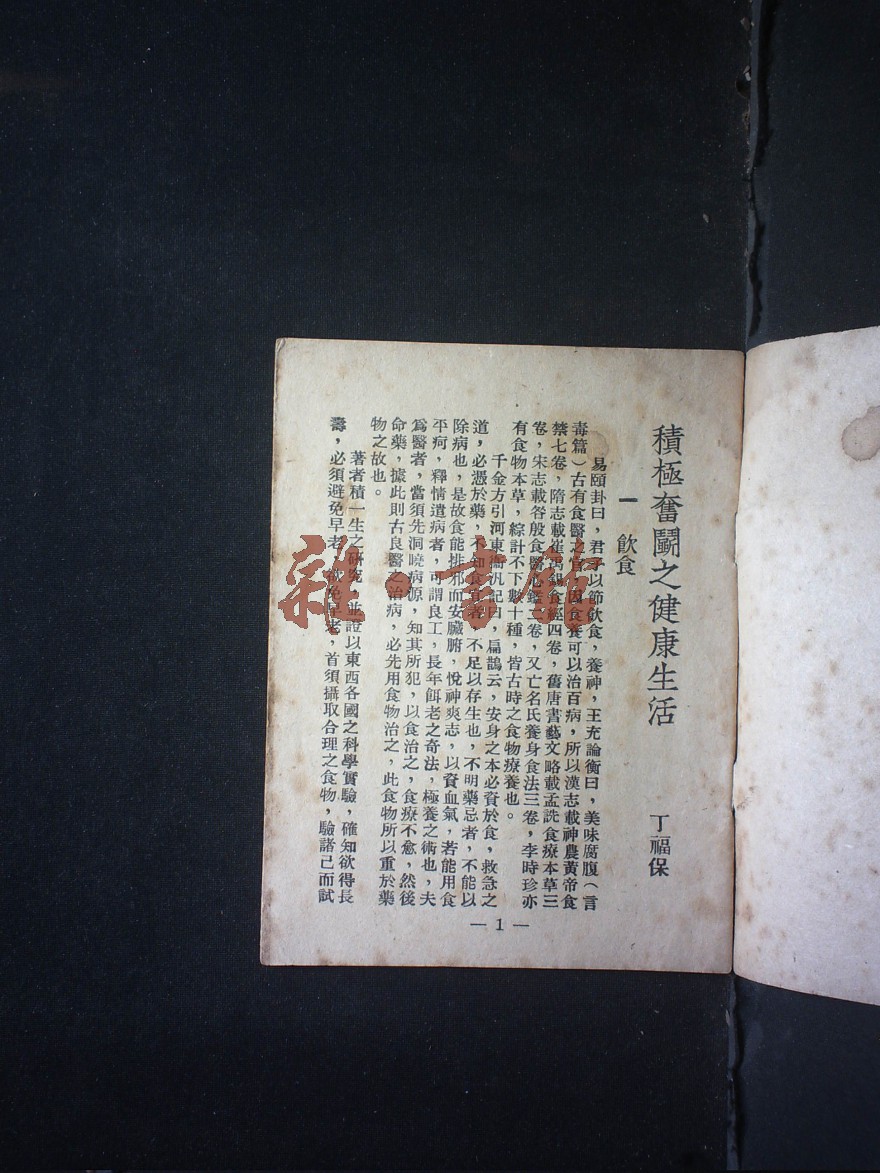 積極奮鬭之健康生活
丁福保
一 飲食
易頤卦曰，君子以節飲食，養神，王充論衡曰，美味腐腹（言
毒篇）古有食醫之官，因食養可以治百病，所以漢志載神農黃帝食
禁七卷，隋志載崔禹錫食經四卷，舊唐書藝文略載孟詵食療本草三
卷，宋志載咎殷食醫心鑑二卷，又亡名氏養身食法三卷，李時珍亦
有食物本草，綜計不下數十種，皆古時之食物療養也。
千金方引河東衞汎記曰，扁鵲云，安身之本必資於食，救急之
道，必憑於藥，不知食宜者，不足以存生也，不明藥忌者，不能以
除病也，是故食能排邪而安臟腑，悅神爽志，以資血氣，若能用食
平疴，釋情遣病者，可謂良工，長年餌老之奇法，極養之術也，夫
爲醫者，當須先洞曉病源，知其所犯，以食治之，食療不愈，然後
命藥，據此則古良醫之治病，必先用食物治之，此食物所以重於藥
物之故也。
著者積一生之研究，並證以東西各國之科學實驗，確知欲得長
壽，必須避免早老，欲免早老，首須攝取合理之食物，驗諸己而試
— 1 —
雜·書館